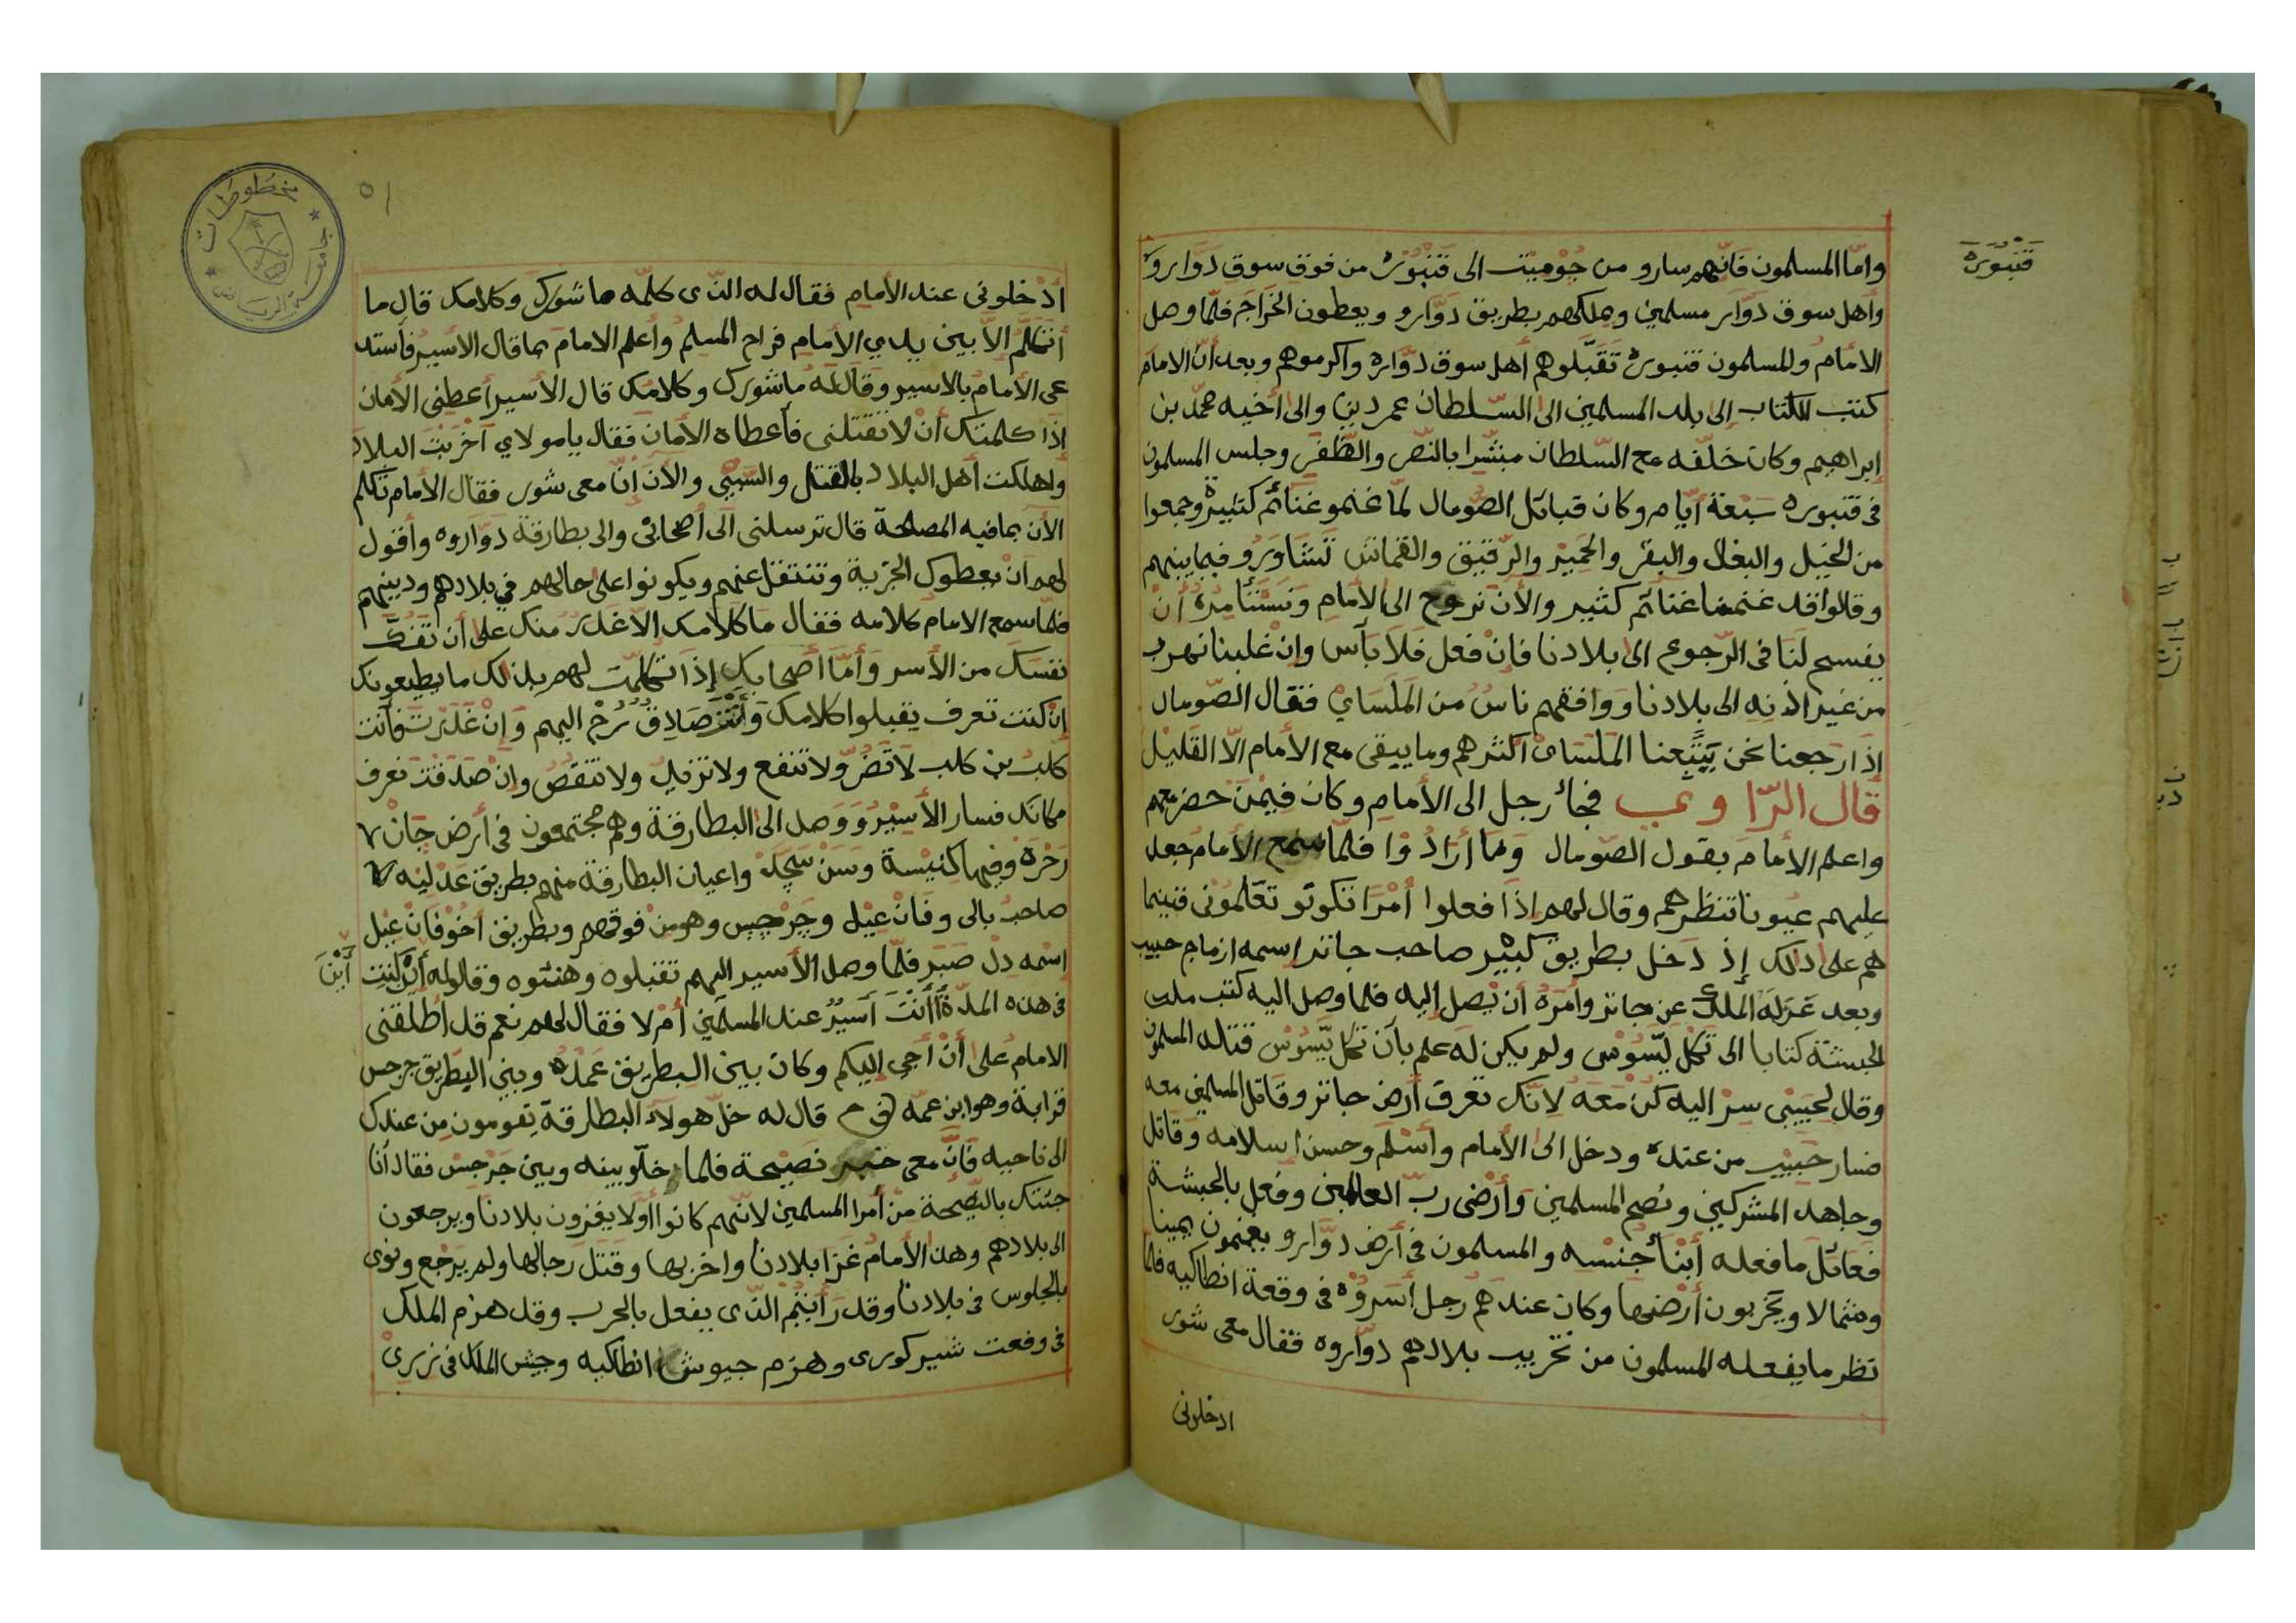 قنبوره
وامّا المسلمون فانّهم سارو من جُوميت الى قَنبُوره من فوق سوق دوّارو
وأهل سوق دوّار مسلمين وملكهم بطريق دوّارو ويعطون الخراجم فلمّا وصل
الامام والمسلمون قنبوره تقبّلوهم أهل سوق دوّاره واكرموهم وبعد أن الامام
كتب الكتاب إلى بلد المسلمين الى السّلطان عمر دين والى أخيه محمّد بن
إبراهيم وكان خلّفه مع السّلطان مبشّرا بالنّصر والظّفر وجلس المسلمون
فى قنبوره سبعة أيّام وكان قبائل الصّومال لمّا غنمو غنائم كثيرة وجمعوا
من الخيل والبغال والبقر والحمير والرّقيق والقماش تشاورو فيما بينهم
وقالوا قد غنمنا غنائم كثير والأن نروح الى الأمام ونستأمره أن
يفسح لنا فى الرّجوع الى بلادنا فان فعل فلا بأس وان غلبنا نهرب
من غير اذنه الى بلادنا ووافقهم ناس من الملساي فقال الصّومال
إذا رجعنا نحن يتبعنا الملساى اكثرهم وما يبقى مع الأمام الّا القليل
قال الرّاوي فجاء رجل الى الأمام وكان فيمن حضر معهم
واعلم الأمام بقول الصّومال وما أرادوا فلمّا سمع الأمام جعل
عليهم عيونا تنظرهم وقال لهم اذا فعلوا أمرا تكونو تعلمونى فبينما
هم على ذلك إذ دخل بطريق كبير صاحب جاتر اسمه ازماج حبيب
وبعد عزله الملك عن جاتر وأمره أن يصل إليه فلما وصل اليه كتب ملك
الحبشة كتابا الى تكل ليسوس ولم يكن له علم بأن تكل يسوس قتله المسلمون
وقال لحبيب سر اليه كن معه لانك تعرف أرض جاتر وقاتل المسلمين معه
فسار حبيب من عنده ودخل الى الأمام وأسلم وحسن اسلامه وقاتل
وجاهد المشركين ونصح المسلمين وأرضى ربّ العالمين وفعل بالحبشة
فعائل ما فعله أبنا جنسه والمسلمون فى أرض دوّارو يغنمون يمينا
وشمالا ويخربون أرضها وكان عندهم رجل أسروه فى وقعة انطاكيه فلما
نظر ما يفعله المسلمون من تخريب بلادهم دوّاروه فقال معى شور
ادخلونى
٥١
مخطوطات
جامعة الرياض
أدخلونى عند الأمام فقال له الذّى كلّمه ما شورك وكلامك قال ما
أتكلّم الّا بين يدي الأمام فراح المسلم وأعلم الامام بما قال الأسير فأستد
عى الأمام بالاسير وقال له ما شورك وكلامك قال الأسير أعطنى الأمان
إذا كلمتك أن لا تقتلنى فأعطاه الأمان فقال يا مولاي أخربت البلاد
واهلكت أهل البلاد بالقتل والسّبي والأن إنّ معى شور فقال الأمام تكلم
الأن بما فيه المصلحة قال ترسلنى الى أصحابى والى بطارقة دوّاروه وأقول
لهم أن يعطوك الجزية وتنتقل عنهم ويكونوا على حالهم في بلادهم ودينهم
فلمّا سمع الامام كلامه فقال ما كلامك الّا غدر منك على أن تفكّ
نفسك من الأسر وأمّا أصحابك إذا تكلّمت لهم بذلك ما يطيعونك
إن كنت تعرف يقبلوا كلامك وأنت صادق رح اليهم وإن غدرت فأنت
كلب بن كلب لا تضرّ ولا تنفع ولا تزيد ولا تنقص وإن صدقت تعرف
مكانك فسار الأسير ووصل الى البطارقة وهم مجتمعون فى أرض جان
زجره وفيها كنيسة وسن سجد واعيان البطارقة منهم بطريق عدليه
صاحب بالى وفان عيل وجرجيس وهو من فوقهم وبطريق اخو فان عيل
اسمه دل صبر فلمّا وصل الأسير اليهم تقبلوه وهنئوه وقالو له أين كنت أين
فى هذه المدّة أأنت أسير عند المسلمين أم لا فقال لهم نعم قد أطلقنى
الامام على أن أجى إليكم وكان بين البطريق عمده وبين البطريق جرجس
قرابة وهو ابن عمّه قال له خلّ هولاء البطارقة يقومون من عندك
الى ناحيه فانّ معى خبر نصيحة فلما خلّو بينه وبين جرجس فقال أنا
جئتك بالنّصيحة من أمرا المسلمين لانّهم كانوا أولا يغزون بلادنا ويرجعون
الى بلادهم وهذا الأمام غزا بلادنا واخربها وقتل رجالها ولم يرجع ونوى
بالجلوس فى بلادنا وقد رأيتم الذّى يفعل بالحرب وقد هزم الملك
فى وقعت شنبر كورى وهزم جيوش انطاكيه وجيش الملك فى زرى